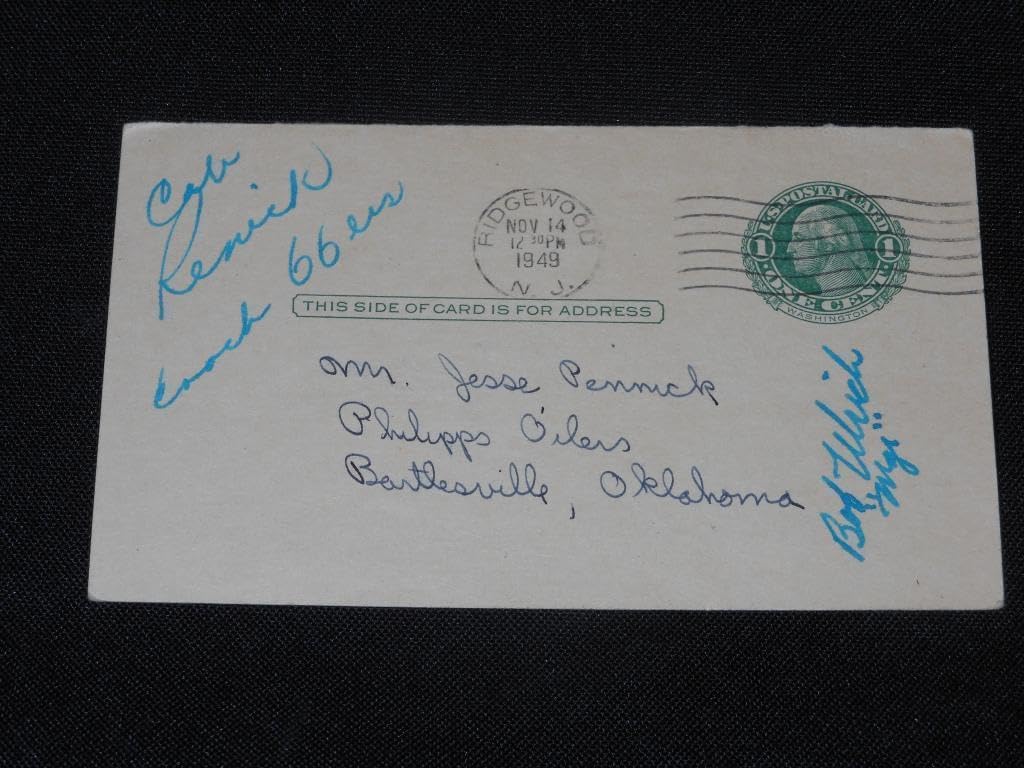 Cab
Renick
coach 66ers
RIDGEWOOD
NOV 14
12 30 PM
1949
N. J.
U.S. POSTAL CARD
1 1
ONE CENT
WASHINGTON
THIS SIDE OF CARD IS FOR ADDRESS
Mr. Jesse Pennick
Philipps Oilers
Bartlesville, Oklahoma
Bob
"Mgr"